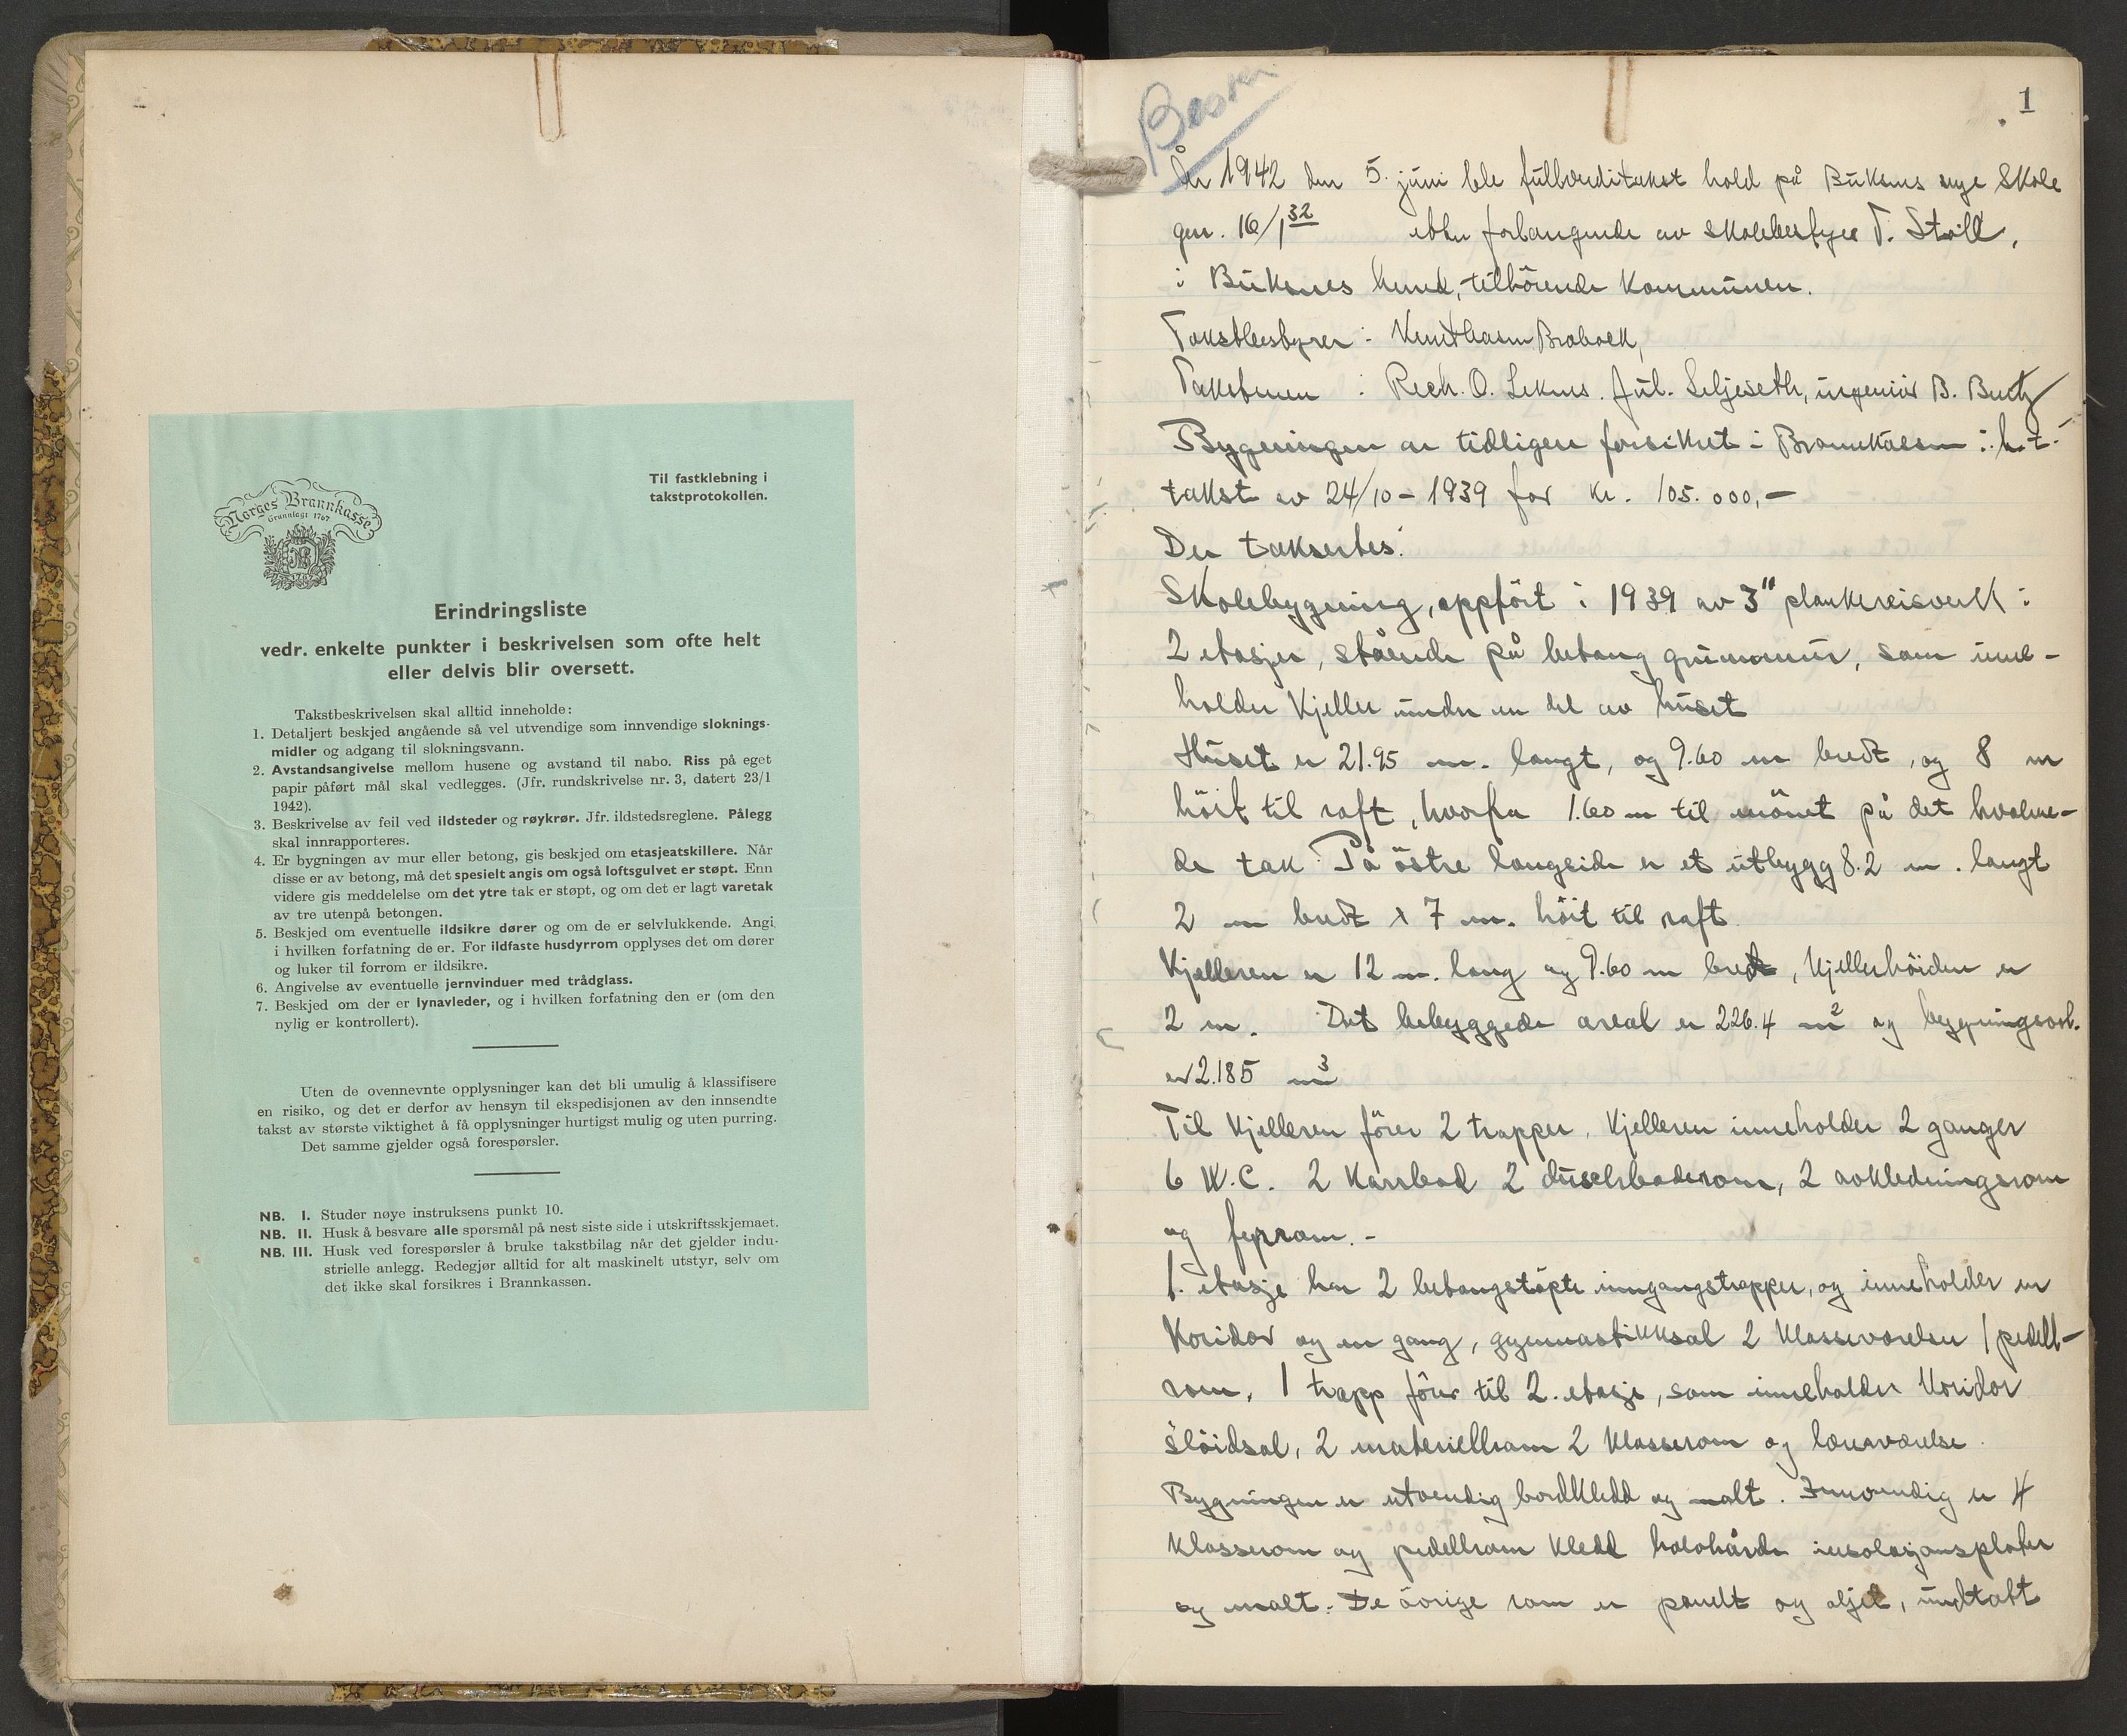 Til fastklebning i
takstprotokollen.
Norges Brannkasse
Grunnlagt 1767
Erindringsliste
vedr. enkelte punkter i beskrivelsen som ofte helt
eller delvis blir oversett.
Takstbeskrivelsen skal alltid inneholde:
1. Detaljert beskjed angående så vel utvendige som innvendige sloknings-
midler og adgang til slokningsvann.
2. Avstandsangivelse mellom husene og avstand til nabo. Riss på eget
papir påført mål skal vedlegges. (Jfr. rundskrivelse nr. 3, datert 23/1
1942).
3. Beskrivelse av feil ved ildsteder og røykrør. Jfr. ildstedsreglene. Pålegg
skal innrapporteres.
4. Er bygningen av mur eller betong, gis beskjed om etasjeatskillere. Når
disse er av betong, må det spesielt angis om også loftsgulvet er støpt. Enn
videre gis meddelelse om det ytre tak er støpt, og om det er lagt varetak
av tre utenpå betongen.
5. Beskjed om eventuelle ildsikre dører og om de er selvlukkende. Angi
i hvilken forfatning de er. For ildfaste husdyrrom opplyses det om dører
og luker til forrom er ildsikre.
6. Angivelse av eventuelle jernvinduer med trådglass.
7. Beskjed om der er lynavleder, og i hvilken forfatning den er (om den
nylig er kontrollert).
Uten de ovennevnte opplysninger kan det bli umulig å klassifisere
en risiko, og det er derfor av hensyn til ekspedisjonen av den innsendte
takst av største viktighet å få opplysninger hurtigst mulig og uten purring.
Det samme gjelder også forespørsler.
NB. I. Studer nøye instruksens punkt 10.
NB. II. Husk å besvare alle spørsmål på nest siste side i utskriftsskjemaet.
NB. III. Husk ved forespørsler å bruke takstbilag når det gjelder indu-
strielle anlegg. Redegjør alltid for alt maskinelt utstyr, selv om
det ikke skal forsikres i Brannkassen.
1
År 1942 den 5. juni ble fullverditakst hold på Buksnes nye Skole
gnr. 16/1 32 etter forlangende av skolebestyrer T.
i Buksnes herred, tilhörende Kommunen.
Takstbestyrer :
Takstmen : Rich. O. Leknes. Jul. Seljeseth, ingeniör B.
Bygningen er tidligere forsikret i Brannkassen i h.t.
takst av 24/10 - 1939 for kr. 105.000,-
Der taksertes:
Skolebygning, oppfört i 1939 av 3" plankereisverk i
2 etasjer, stående på betong grunnmur, som inne-
holder Kjeller under en del av huset
Huset er 21.95 m. langt, og 9.60 m bredt, og 8 m
höit til raft, hvorfra 1.60 m til mönet på det hvalme-
de tak. På östre langside er et utbygg 8.2 m. langt
2 m bredt x 7 m. höit til raft.
Kjelleren er 12 m. lang og 9.60 m bred, Kjellerhöiden er
2 m. Det bebyggede areal er 226.4 m² og bygningsvol.
er 2.185 m³
Til Kjelleren förer 2 trapper. Kjelleren inneholder 2 ganger
6 W.C. 2 Karrbad 2 duschbaderom, 2 avkledningsrom
og fyrrom. -
1. etasje har 2 betongstöpte inngangstrapper, og inneholder en
Koridor og en gang, gymnastikksal 2 Klasseværelser 1 pedell-
rom. 1 trapp förer til 2. etasje, som inneholder Koridor
slöidsal, 2 materiellrom 2 Klasserom og læreværelse.
Bygningen er utvendig bordkledd og malt. Innvendig er 4
Klasserom og pedellrom kledd halvhårde insolasjonsplater
og malt. De övrige rom er panelt og oljet, undtatt